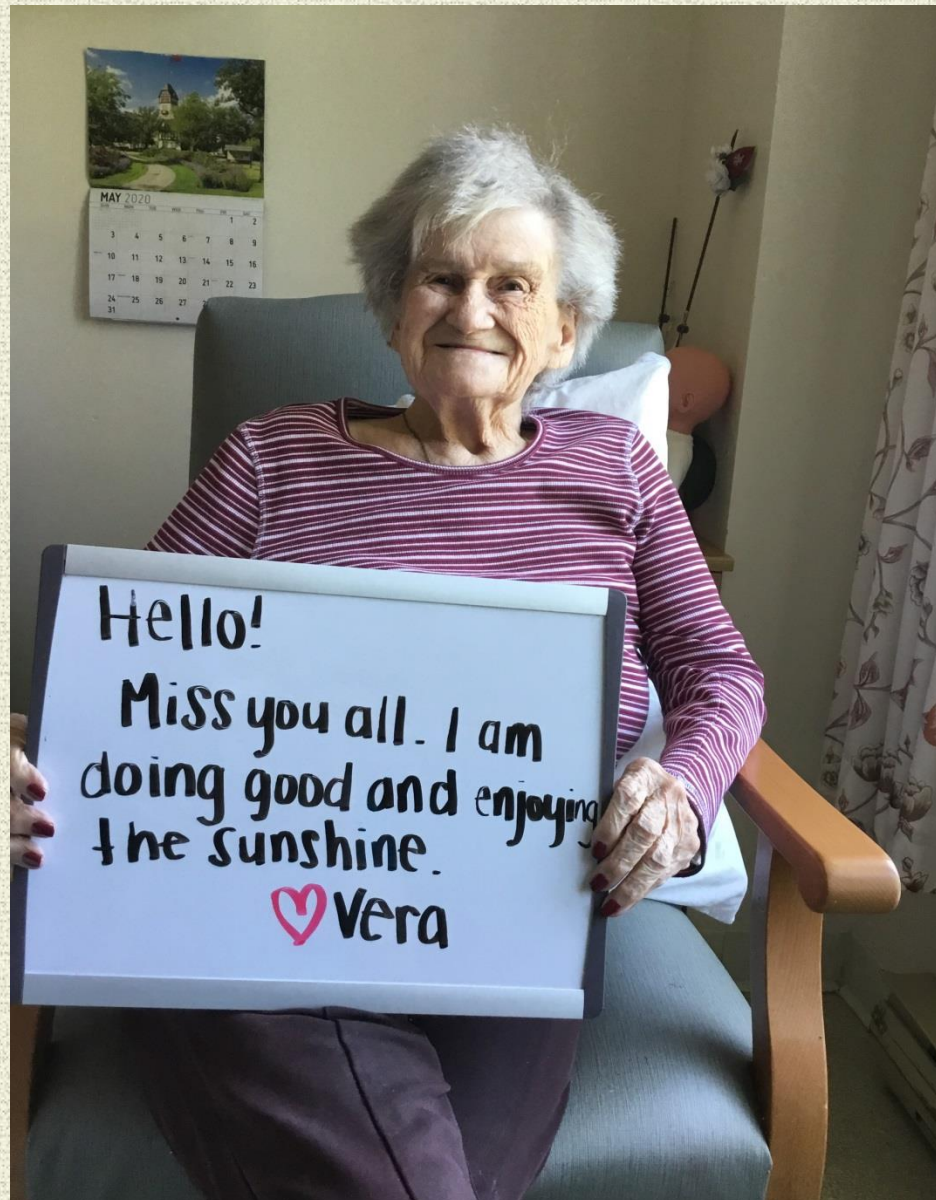 MAY 2020
1 2
3 4 5 6 7 8 9
10 11 12 13 14 15 16
17 18 19 20 21 22 23
24 25 26 27
31
Hello!
Miss you all. I am
doing good and enjoying
the sunshine.
♡ Vera